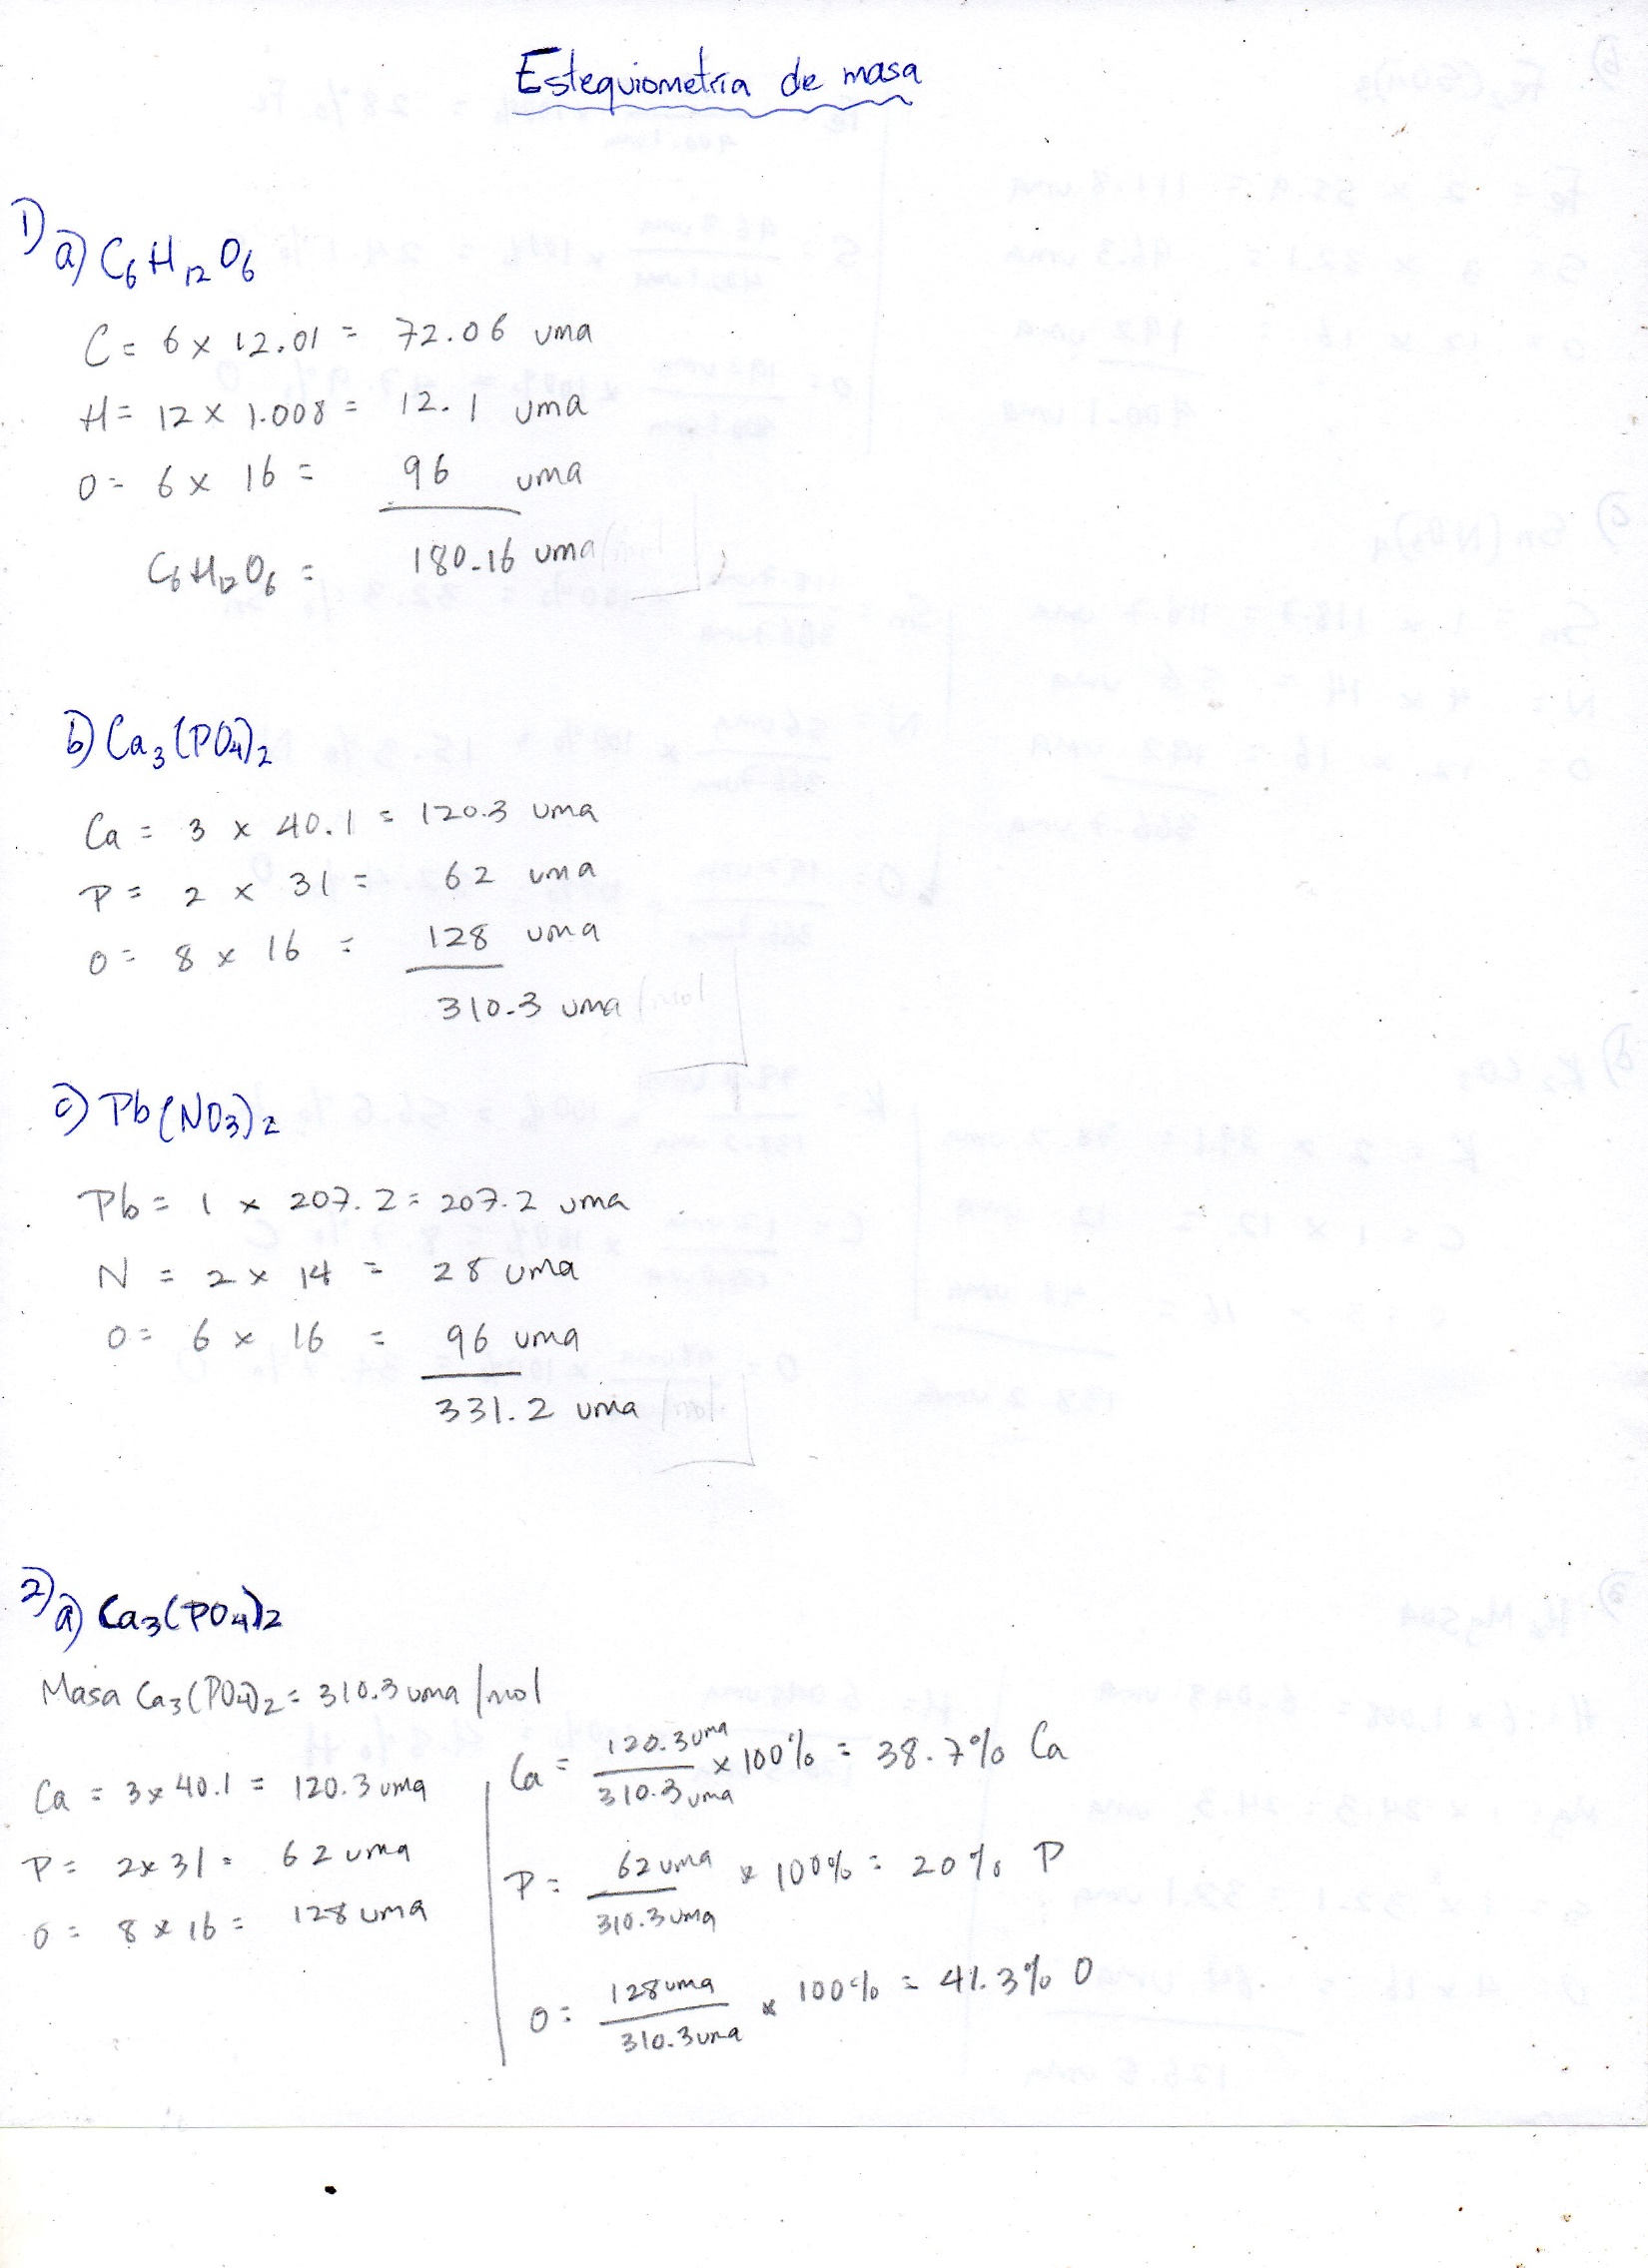 Estequiometría de masa
1) a) C6 H12 O6
C = 6 x 12.01 = 72.06 uma
H = 12 x 1.008 = 12.1 uma
O = 6 x 16 = 96 uma
C6 H12 O6 = 180.16 uma/mol
b) Ca3(PO4)2
Ca = 3 x 40.1 = 120.3 uma
P = 2 x 31 = 62 uma
O = 8 x 16 = 128 uma
310.3 uma/mol
c) Pb(NO3)2
Pb = 1 x 207.2 = 207.2 uma
N = 2 x 14 = 28 uma
O = 6 x 16 = 96 uma
331.2 uma/mol
2) a) Ca3(PO4)2
Masa Ca3(PO4)2 = 310.3 uma/mol
Ca = 3 x 40.1 = 120.3 uma
P = 2x31 = 62 uma
O = 8 x 16 = 128 uma
Ca = 120.3 uma / 310.3 uma x 100% = 38.7% Ca
P = 62 uma / 310.3 uma x 100% = 20% P
O = 128 uma / 310.3 uma x 100% = 41.3% O